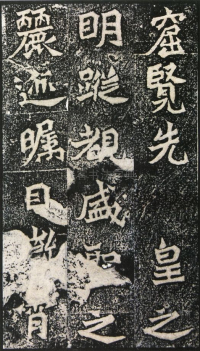 窟覽先皇之
明蹤覩盛聖之
麗迹矚目